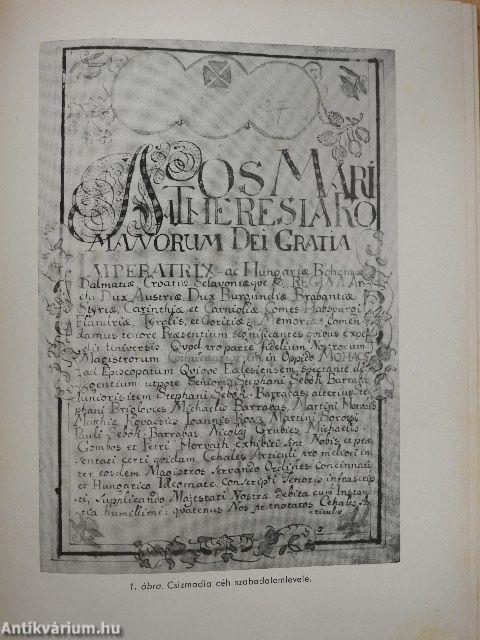 27
NOS MARI
A THERESIA RO
MANORUM DEI GRATIA
IMPERATRIX ac Hungariæ Bohemiæ
Dalmatiæ, Croatiæ Sclavoniæque &c. REGINA Ar
chi Dux Austriæ Dux Burgundiæ Brabantiæ
Styriæ, Carinthiæ et Carnioliæ Comes Habspurgi
Flandriæ, Tyrolis, et Goritiæ &c. Memoriæ Comen
damus tenore Præsentium significantes quibus expe
dit Universis. Quod pro parte fidelium Nostrorum
Magistrorum in Oppido MOHACS
ad Episcopatum Quinque Ecclesiensem spectante de
gentium utpote Senioris Stephani Sebök Barrabas
Junioris item Stephani Sebök Barrabas, alterius Ste
phani Briglovics Michaelis Barrabas, Martini Horvath
Matthiæ Kovacsics Joannis Martini
Pauli Sebök Barrabas Nicolai Grubics Michaelis
Gombos et Petri Horvath Exhibiti sint Nobis, et præ
sentati certi quidam Cehales Articuli pro meliori in
ter eosdem Magistros servando Ordine, concinnati
et Hungarico Idiomate Conscripti Tenoris infrascrip
ti, Supplicando Majestati Nostræ debita cum Instan
tia humillime; quatenus Nos prænotatos Cehales Ar
ticulos
1. ábra. Csizmadia céh szabadalomlevele.
Antikvárium.hu